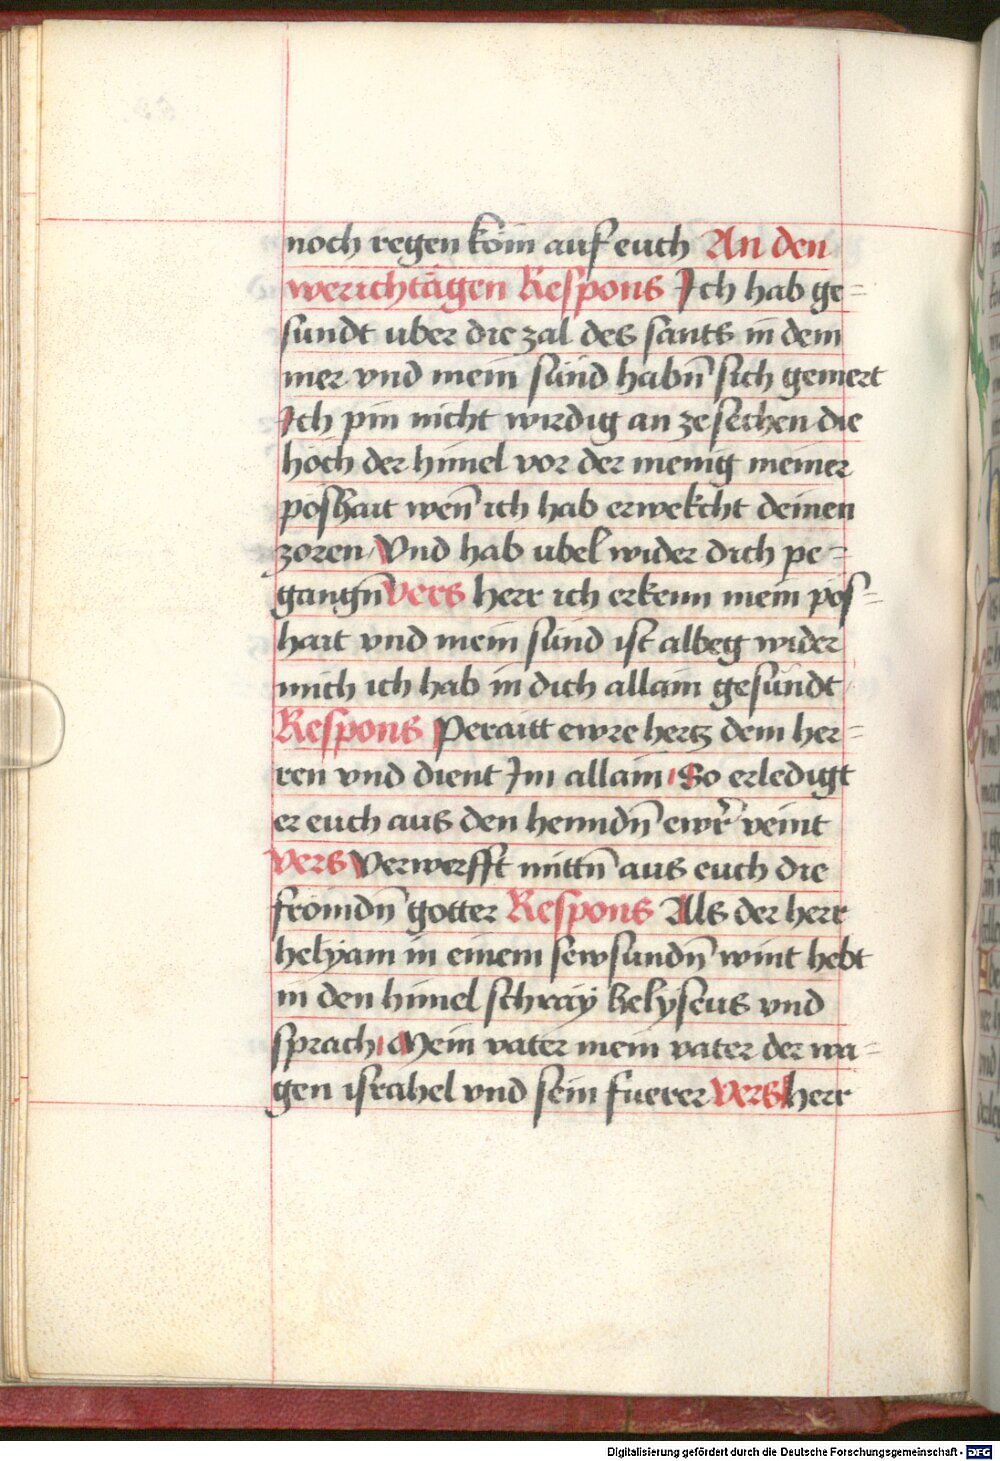 noch regen köm auf euch An den
werichtägen Respons Ich hab ge=
sundt uber die zal des sants in dem
mer vnd mein sünd habn̄ sich gemert
Ich pin nicht wirdig an ze sechen die
höch der himel vor der menig meiner
poshait wen̄ ich hab erwekcht deinen
zoren Vnd hab ubel wider dich pe=
gangn̄ Vers herr ich erkenn mein pos=
hait vnd mein sünd ist albeg wider
mich ich hab in dich allain gesündt
Respons Peraitt ewre hertz dem her=
ren vnd dient Im allain So erledigt
er euch aus den henndn̄ ewr̄ veint
Vers Verwerfft mittn̄ aus euch die
frömdn̄ gotter Respons Als der herr
helyam in einem sewsundn̄ wint hebt
in den himel schray helyseus vnd
sprach Mein vater mein vater der wa=
gen israhel vnd sein fuerer Vers herr
Digitalisierung gefördert durch die Deutsche Forschungsgemeinschaft - DFG